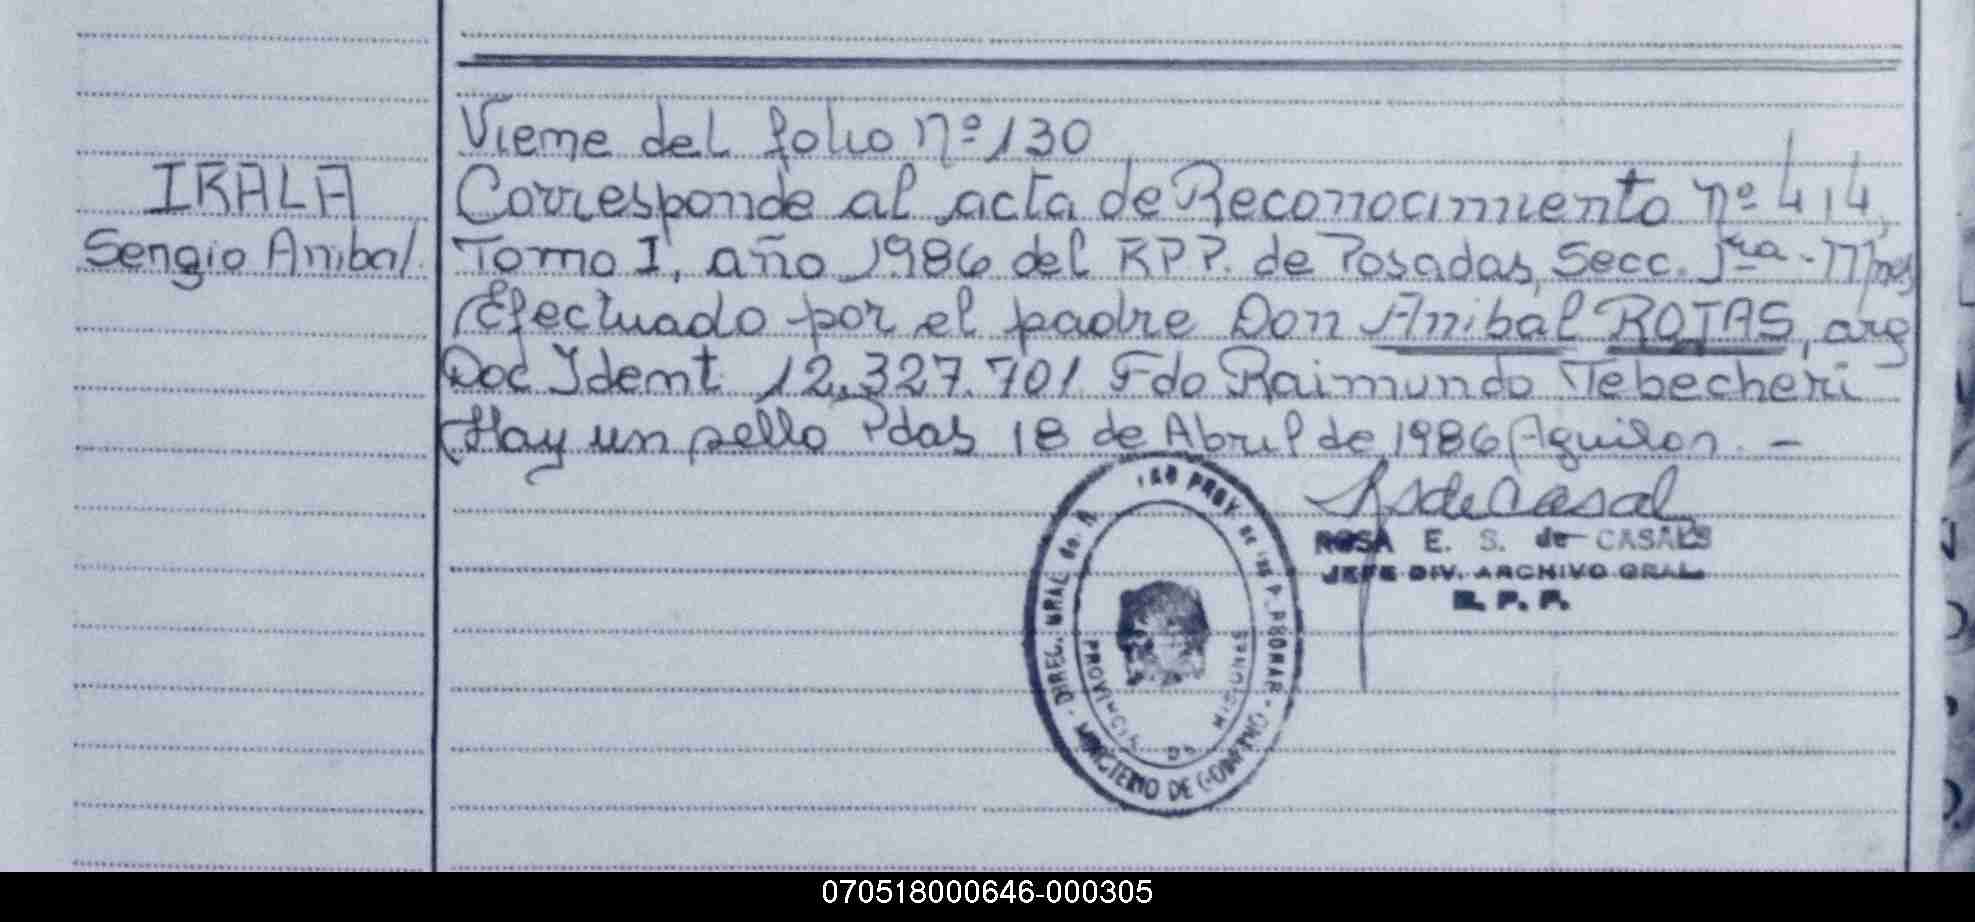 Viene del folio nº 130
IRALA
Corresponde al acta de Reconocimiento nº 414,
Sergio Anibal.
Tomo I, año 1986 del RPP. de Posadas, Secc. 1ra - Mnes
Efectuado por el padre Don Anibal ROJAS, arg
Doc Ident 12.327.701 Fdo Raimundo Tebecheri
Hay un sello Pdas 18 de Abril de 1986 Aguilon. -
RSdeCasal
ROSA E. S. de CASALS
JEFE DIV. ARCHIVO GRAL.
R. P. P.
DIREC. GRAL. de PROV. de las P.
MINISTERIO DE GOBIERNO
PROVINCIA DE MISIONES
070518000646-000305